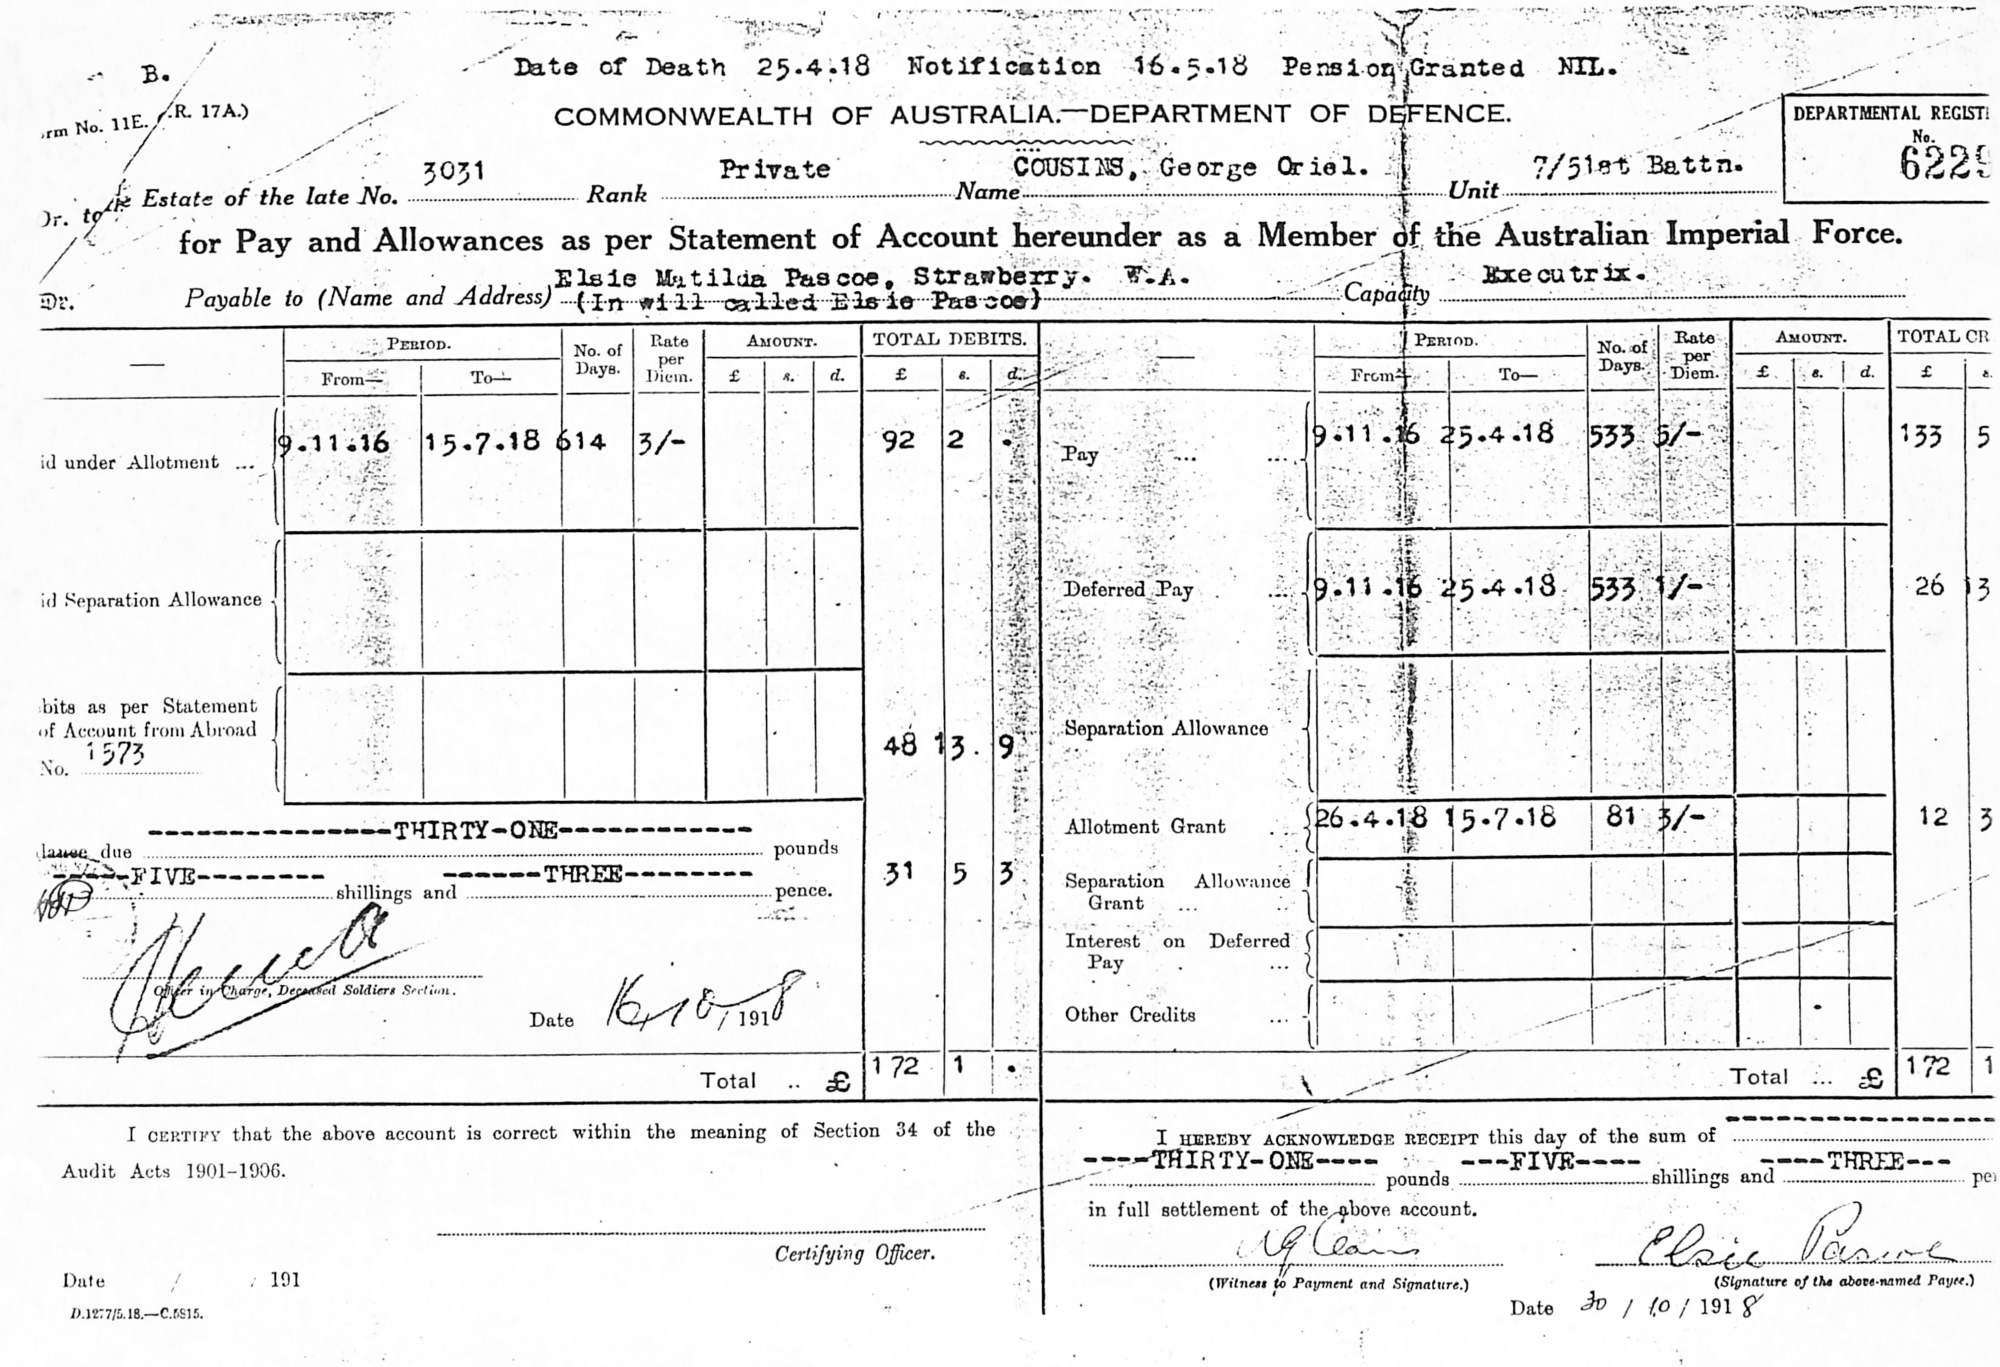 B.
Date of Death 25.4.18 Notification 16.5.18 Pension Granted NIL.
rm No. 11E. R. 17A.)
COMMONWEALTH OF AUSTRALIA.—DEPARTMENT OF DEFENCE.
DEPARTMENTAL REGIST
No.
6229
Dr. to the Estate of the late No. 3031 Rank Private Name COUSINS, George Oriel. Unit 7/51st Battn.
for Pay and Allowances as per Statement of Account hereunder as a Member of the Australian Imperial Force.
Dr. Payable to (Name and Address) Elsie Matilda Pascoe, Strawberry. W.A. Capacity Executrix.
(In will called Elsie Pascoe)
PERIOD. No. of Days. Rate per Diem. AMOUNT. TOTAL DEBITS. PERIOD. No. of Days. Rate per Diem. AMOUNT. TOTAL CR
From— To— £ s. d. £ s. d. From— To— £ s. d. £ s.
id under Allotment ... 9.11.16 15.7.18 614 3/- 92 2 . Pay ... ... 9.11.16 25.4.18 533 5/- 133 5
id Separation Allowance Deferred Pay ... 9.11.16 25.4.18 533 1/- 26 13
bits as per Statement
of Account from Abroad
No. 1573 48 13. 9 Separation Allowance
Allotment Grant 26.4.18 15.7.18 81 3/- 12 3
lance due ---THIRTY-ONE--- pounds
---FIVE--- shillings and ---THREE--- pence. 31 5 3
Separation Allowance
Grant ...
Interest on Deferred
Pay ...
Officer in Charge, Deceased Soldiers Section.
Date 16/10/1918
Other Credits ...
Total .. £ 172 1 . Total ... £ 172 1
I CERTIFY that the above account is correct within the meaning of Section 34 of the
Audit Acts 1901-1906.
Certifying Officer.
Date / 191
D.1277/5.18.—C.5815.
I HEREBY ACKNOWLEDGE RECEIPT this day of the sum of
----THIRTY-ONE---- pounds ---FIVE---- shillings and ----THREE--- pe
in full settlement of the above account.
Elsie Pascoe
(Witness to Payment and Signature.) (Signature of the above-named Payee.)
Date 30/10/1918